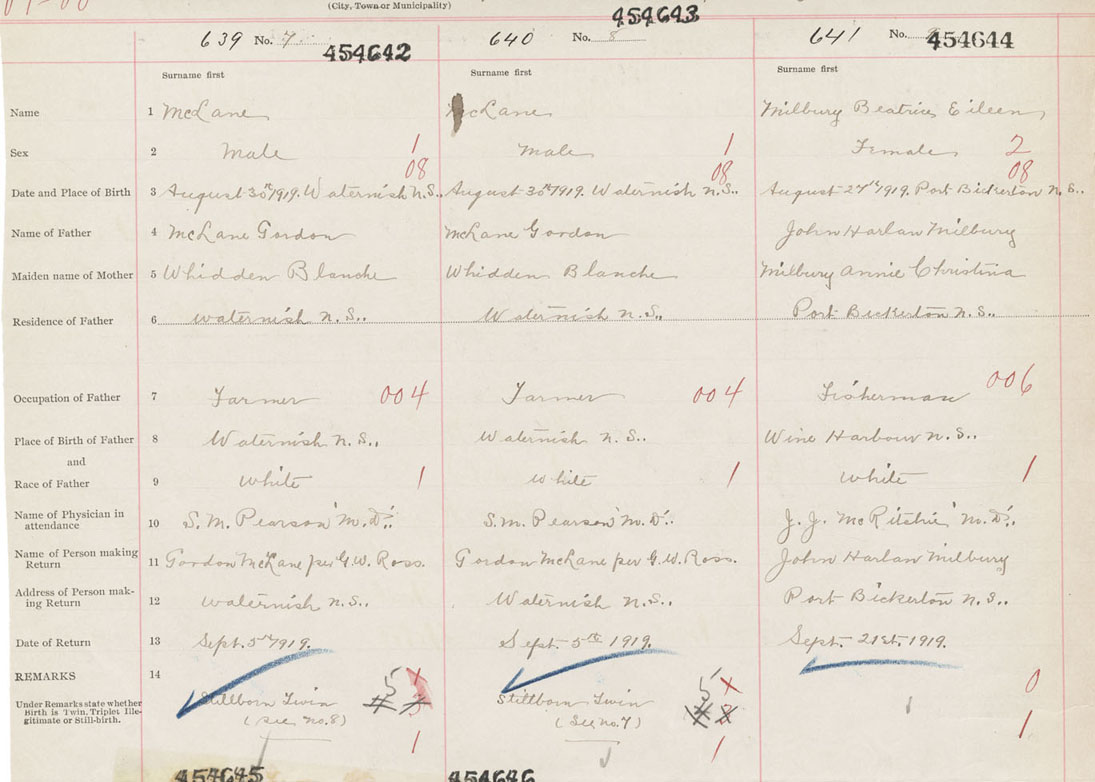 (City, Town or Municipality)
639 No. 7 454642 640 No. 8 454643 641 No. 454644
Surname first Surname first Surname first
Name 1 McLane McLane Milbury Beatrice Eileen
Sex 2 Male 1 Male 1 Female 2
08 08 08
Date and Place of Birth 3 August 30th 1919. Waternish N.S.. August 30th 1919. Waternish N.S.. August 27th 1919. Port Bickerton N.S..
Name of Father 4 McLane Gordon McLane Gordon John Harlan Milbury
Maiden name of Mother 5 Whidden Blanche Whidden Blanche Milbury Annie Christina
Residence of Father 6 Waternish N.S.. Waternish N.S.. Port Bickerton N.S..
Occupation of Father 7 Farmer 004 Farmer 004 Fisherman 006
Place of Birth of Father 8 Waternish N.S.. Waternish N.S.. Wine Harbour N.S..
and
Race of Father 9 White 1 White 1 White 1
Name of Physician in
attendance 10 S.M. Pearson M.D.. S.M. Pearson M.D.. J.J. McRitchie M.D..
Name of Person making
Return 11 Gordon McLane per G.W. Ross. Gordon McLane per G.W. Ross. John Harlan Milbury
Address of Person mak-
ing Return 12 Waternish N.S.. Waternish N.S.. Port Bickerton N.S..
Date of Return 13 Sept. 5th 1919. Sept. 5th 1919. Sept. 21st. 1919.
REMARKS 14 5 x 5 x 0
Under Remarks state whether
Birth is Twin, Triplet Ille-
gitimate or Still-birth.
Stillborn Twin Stillborn Twin
(see No. 8) (See No. 7)
1 1 1
454645 454646